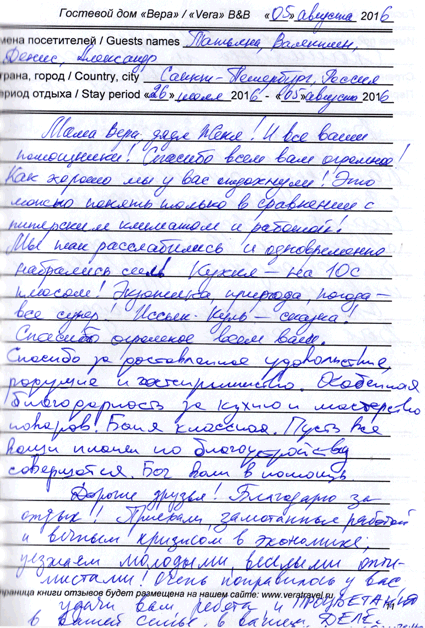 Гостевой дом «Вера» / «Vera» B&B «05» августа 2016
мена посетителей / Guests names Татьяна, Валентин,
Денис, Александр
трана, город / Country, city Санкт-Петербург, Россия
ериод отдыха / Stay period «26» июля 2016 - «05» августа 2016
Мама Вера, дядя Женя! И все ваши
помощники! Спасибо всем вам огромное!
Как хорошо мы у вас отдохнули! Это
можно понять только в сравнении с
питерским климатом и работой!
Мы так расслабились и одновременно
набрались сил. Кухня – на 10 с
плюсом! Экзотика, природа, погода –
все супер! Иссык-Куль – сказка!
Спасибо огромное всем вам.
Спасибо за доставленное удовольствие,
радушие и гостеприимство. Особенная
благодарность за кухню и мастерство
поваров. Баня классная. Пусть все
ваши планы по благоустройству
совершатся. Бог вам в помощь
Дорогие друзья! Благодарю за
отдых! Приехали замотанные работой
и вечным кризисом в экономике,
уезжаем молодыми, веселыми опти-
мистами! Очень понравилось у вас
раница книги отзывов будет размещена на нашем сайте: www.veratravel.ru
удачи вам, ребята, и ПРОЦВЕТАНИЯ
в вашей семье, в вашем ДЕЛЕ